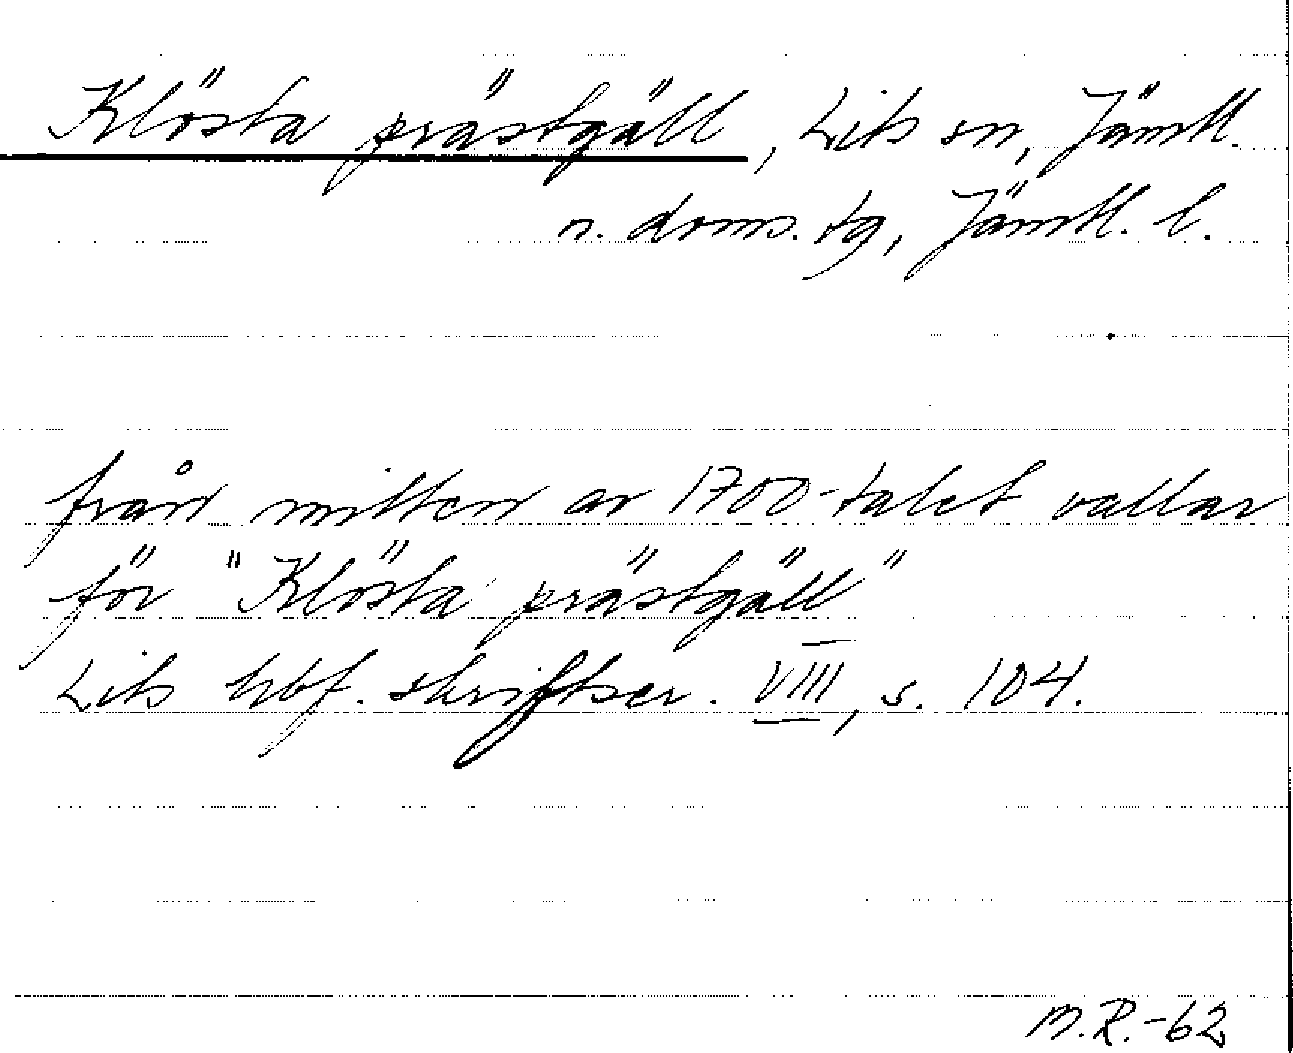 Klösta prästgäll, Lits sn, Jämtl.
n. doms. tg, Jämtl. l.
från mitten av 1700-talet vallar
för "Klösta prästgäll"
Lits hbf. skriftser. VIII, s. 104.
M.R.-62